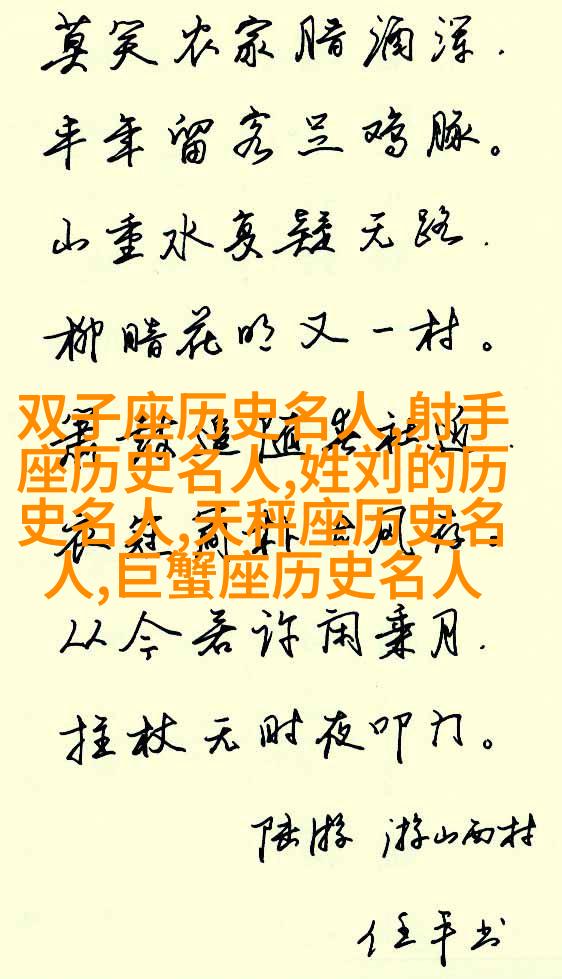 莫笑农家腊酒浑.
丰年留客足鸡豚。
山重水复疑无路.
柳暗花明又一村。
双子座历史名人,射手
座历史名人,姓刘的历
史名人,天秤座历史名
人,巨蟹座历史名人
追随社近.
衣冠风存。
从今若许闲乘月.
拄杖无时夜叩门。
陆游 游山西村
任平书